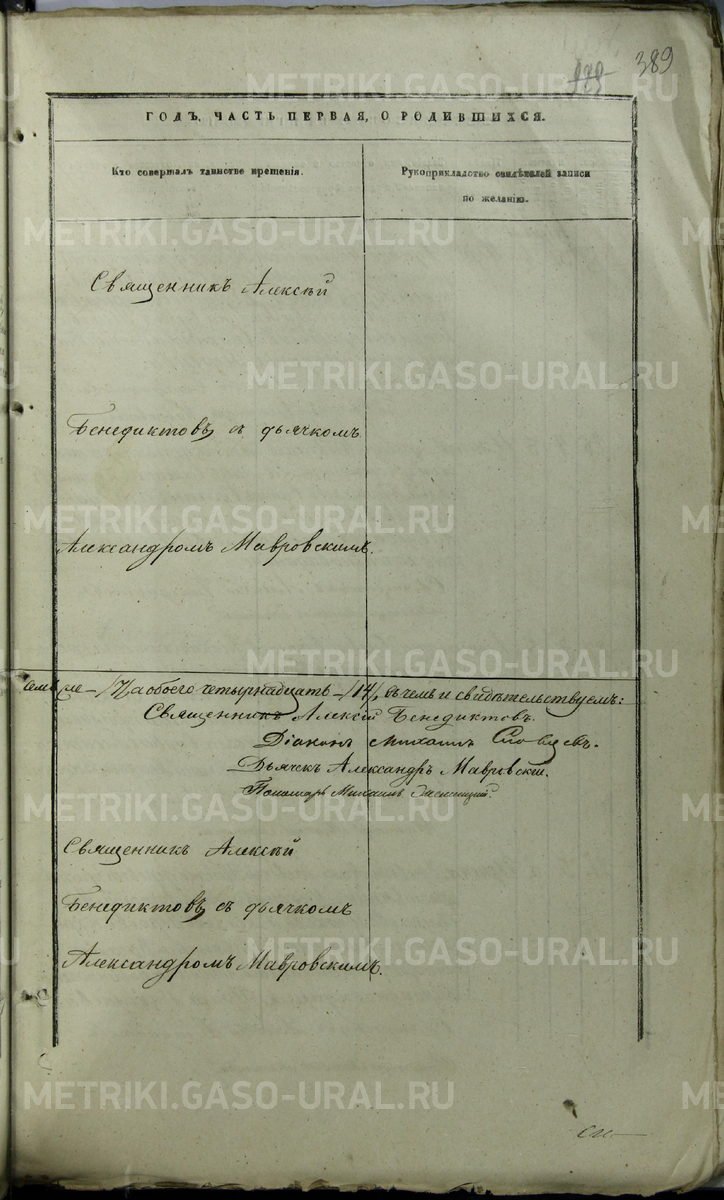 389
ГОДЪ, ЧАСТЬ ПЕРВАЯ, О РОДИВШИХСЯ.
Кто совершалъ таинство крещенія.
Рукоприкладство свидѣтелей записи
по желанію.
Священникъ Алексѣй
Бенедиктовъ съ дьячкомъ
Александромъ Мавровскимъ.
обоего четырнадцать /14/, въ чемъ и свидѣтельствуемъ:
Священникъ Алексѣй Бенедиктовъ.
Діаконъ Михаилъ
Дьячекъ Александръ Мавровскій.
Пономарь Михаилъ
Священникъ Алексѣй
Бенедиктовъ съ дьячкомъ
Александромъ Мавровскимъ.
METRIKI.GASO-URAL.RU